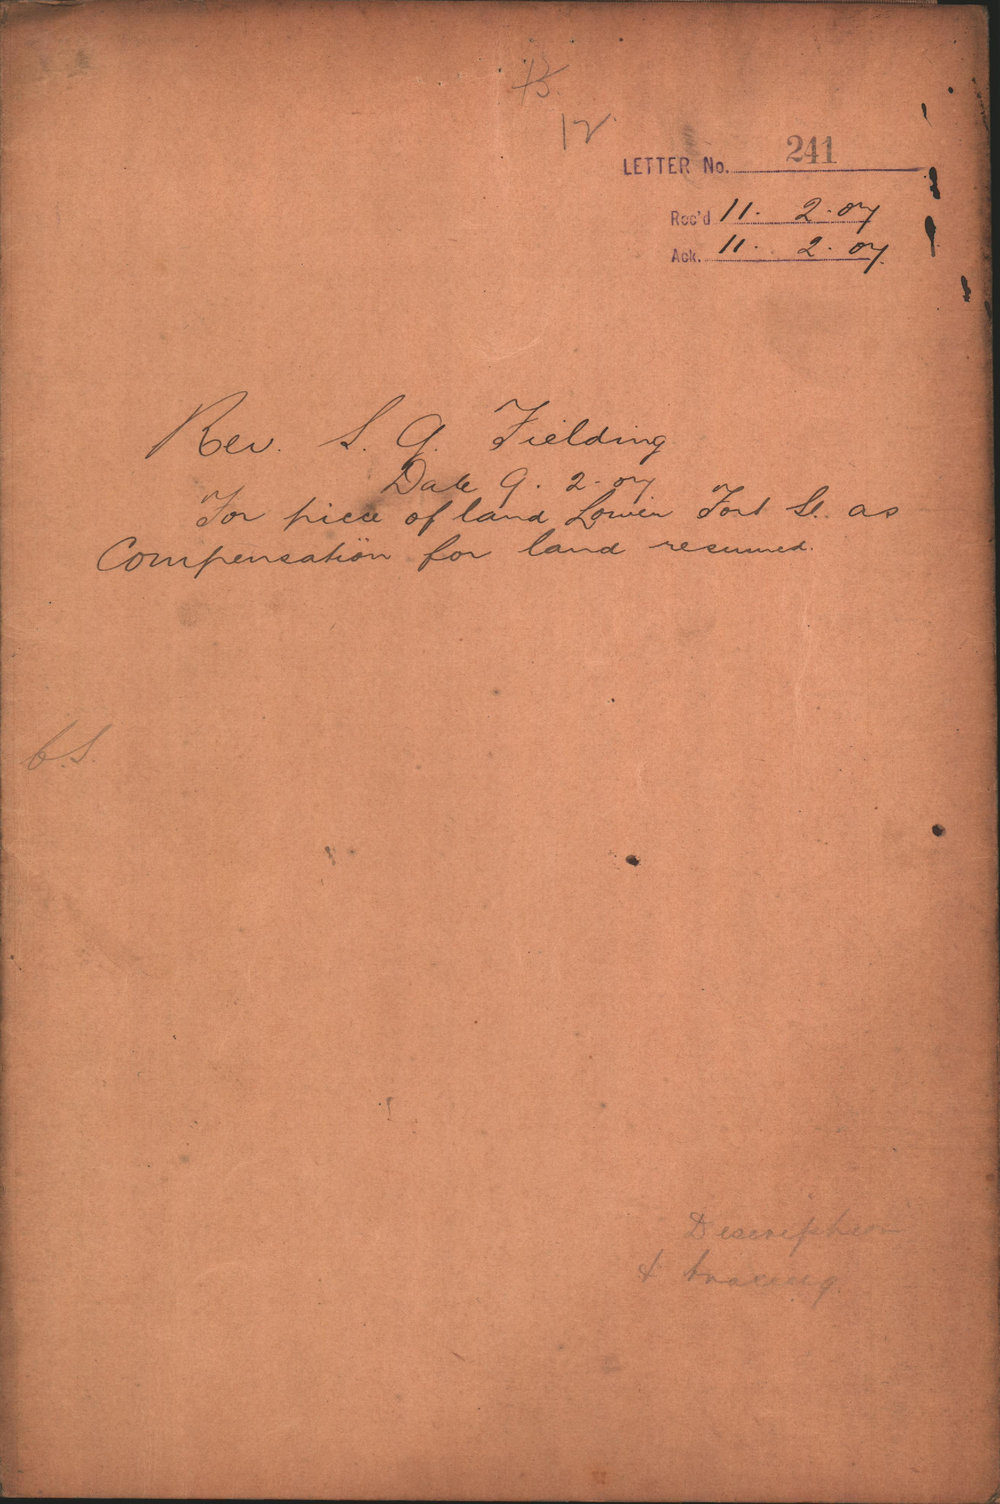 12
LETTER No. 241
Rec'd 11. 2.07
Ack. 11. 2.07
Rev. S. G. Fielding
Date 9. 2.07
For piece of land Lower Fort St. as
Compensation for land resumed.
Description
& tracing.